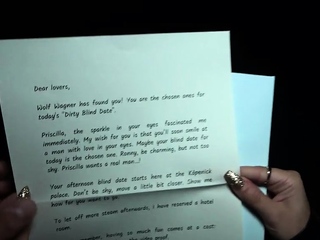 Dear lovers,
Wolf Wagner has found you! You are the chosen ones for
today's "Dirty Blind Date".
Priscilla, the sparkle in your eyes fascinated me
immediately. My wish for you is that you'll soon smile at
a man with love in your eyes. Maybe your blind date for
today is the chosen one. Ronny, be charming, but not too
shy. Priscilla wants a real man...!
Your afternoon blind date starts here at the Köpenick
palace. Don't be shy, move a little bit closer. Show me
how far you want to go.
To let off more steam afterwards, I have reserved a hotel
room.
having so much fun comes at a cost: